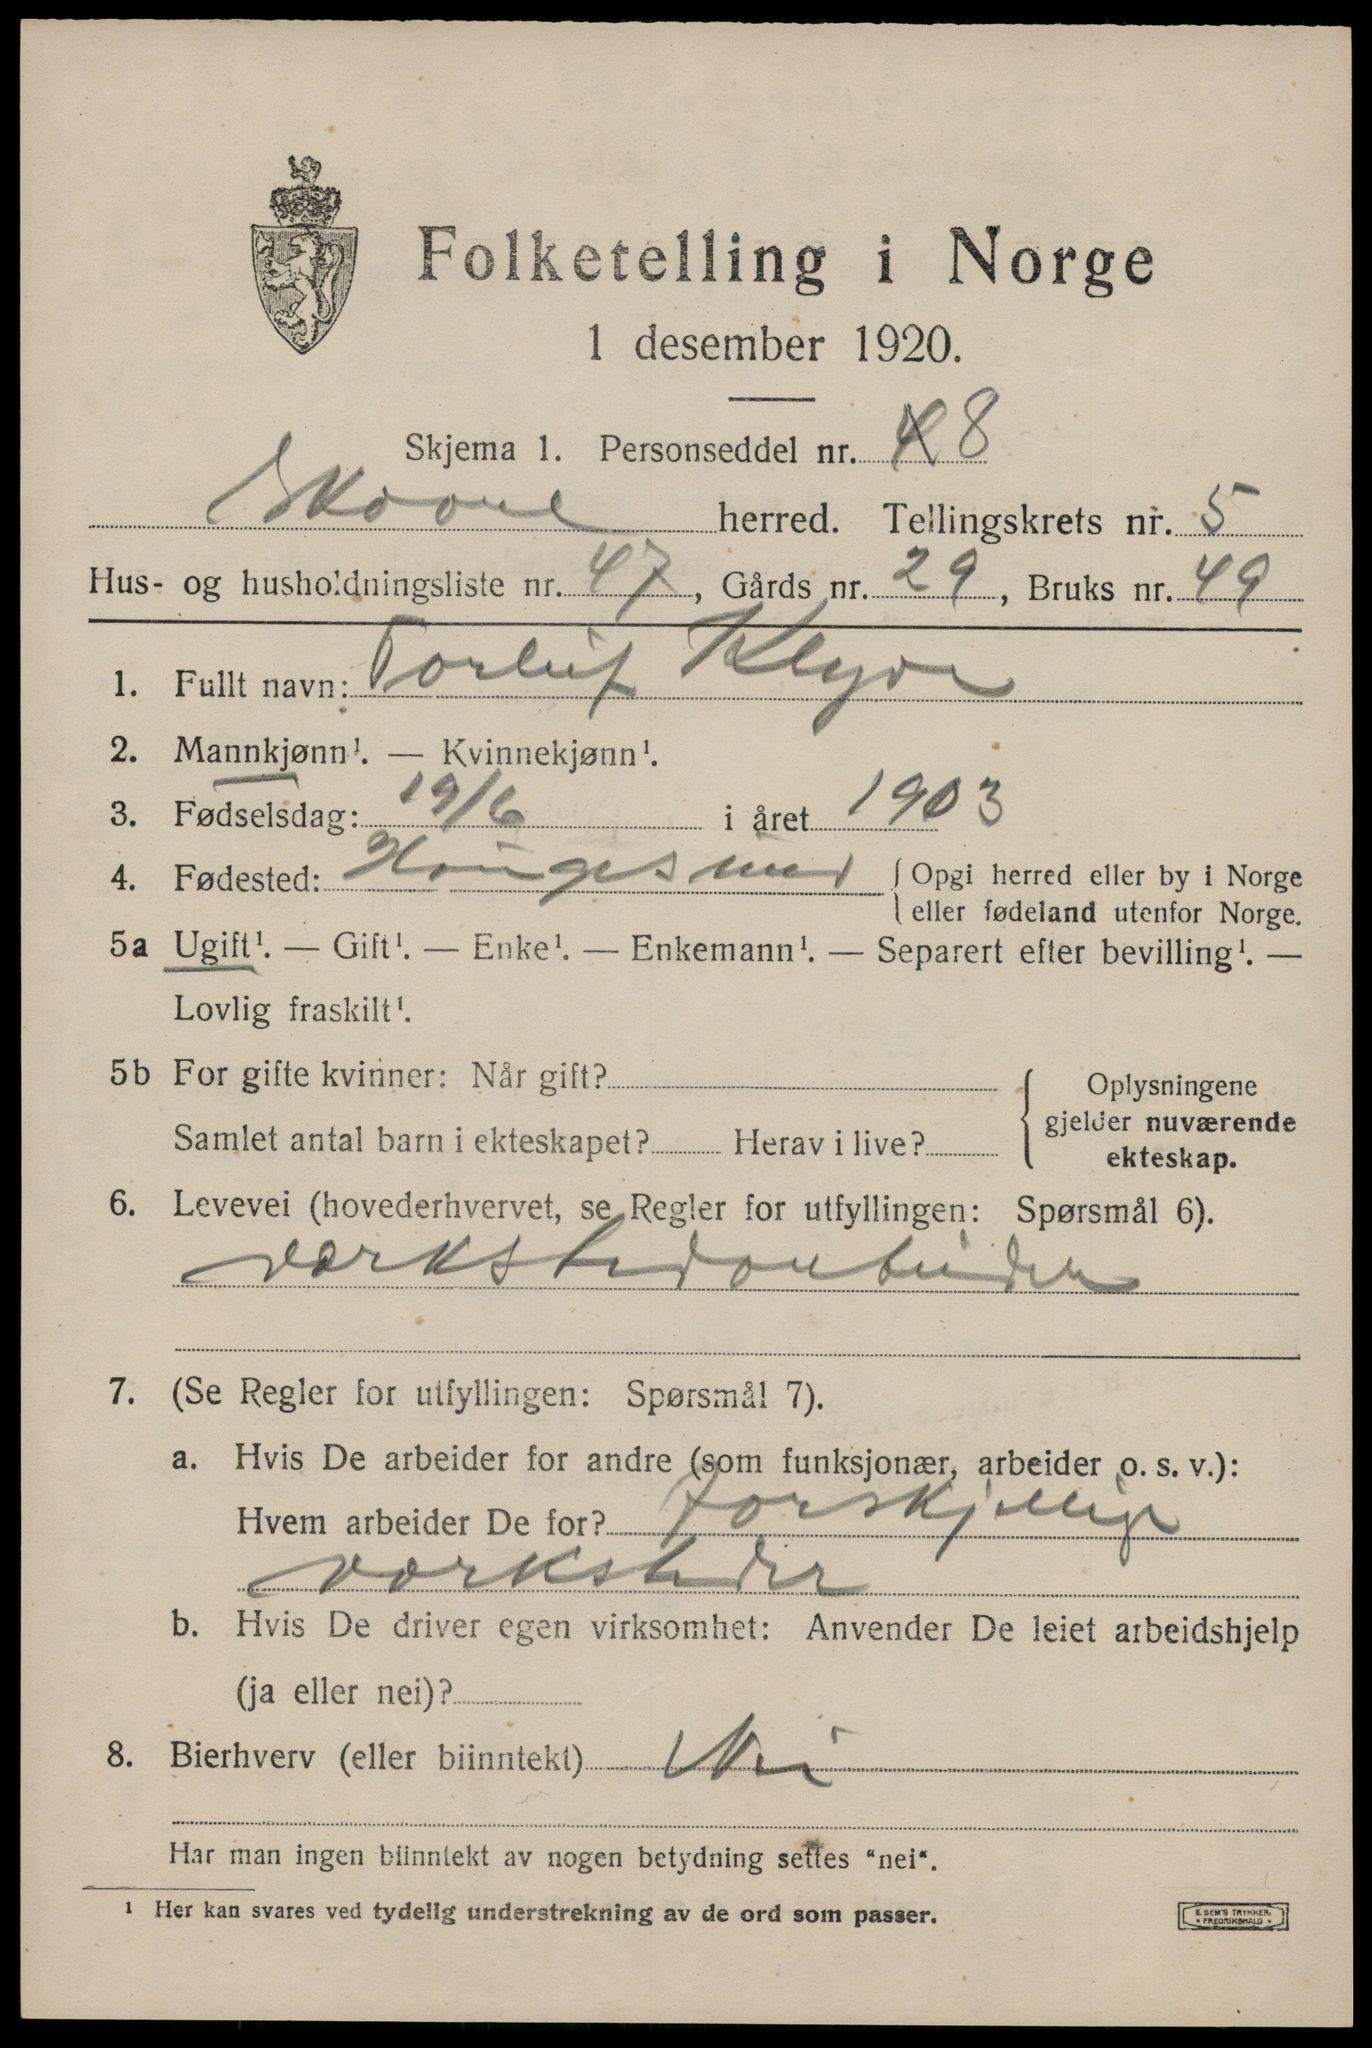 Folketelling i Norge
1 desember 1920.
Skjema 1. Personseddel nr. 8
Skaare herred. Tellingskrets nr. 5
Hus- og husholdningsliste nr. 47, Gårds nr. 29, Bruks nr. 49
1. Fullt navn: Torleif
2. Mannkjønn¹. — Kvinnekjønn¹.
3. Fødselsdag: 19/6 i året 1903
4. Fødested: Haugesund { Opgi herred eller by i Norge
eller fødeland utenfor Norge.
5a Ugift¹. — Gift¹. — Enke¹. — Enkemann¹. — Separert efter bevilling¹. —
Lovlig fraskilt¹.
5b For gifte kvinner: Når gift?
Samlet antal barn i ekteskapet? Herav i live?
{ Oplysningene
gjelder nuværende
ekteskap.
6. Levevei (hovederhvervet, se Regler for utfyllingen: Spørsmål 6).
værkstedarbeider
7. (Se Regler for utfyllingen: Spørsmål 7).
a. Hvis De arbeider for andre (som funksjonær, arbeider o. s. v.):
Hvem arbeider De for? forskjellige
værksteder
b. Hvis De driver egen virksomhet: Anvender De leiet arbeidshjelp
(ja eller nei)?
8. Bierhverv (eller biinntekt) Nei
Har man ingen biinntekt av nogen betydning settes "nei".
¹ Her kan svares ved tydelig understrekning av de ord som passer.
E. SEM'S TRYKKERI
FREDRIKSHALD